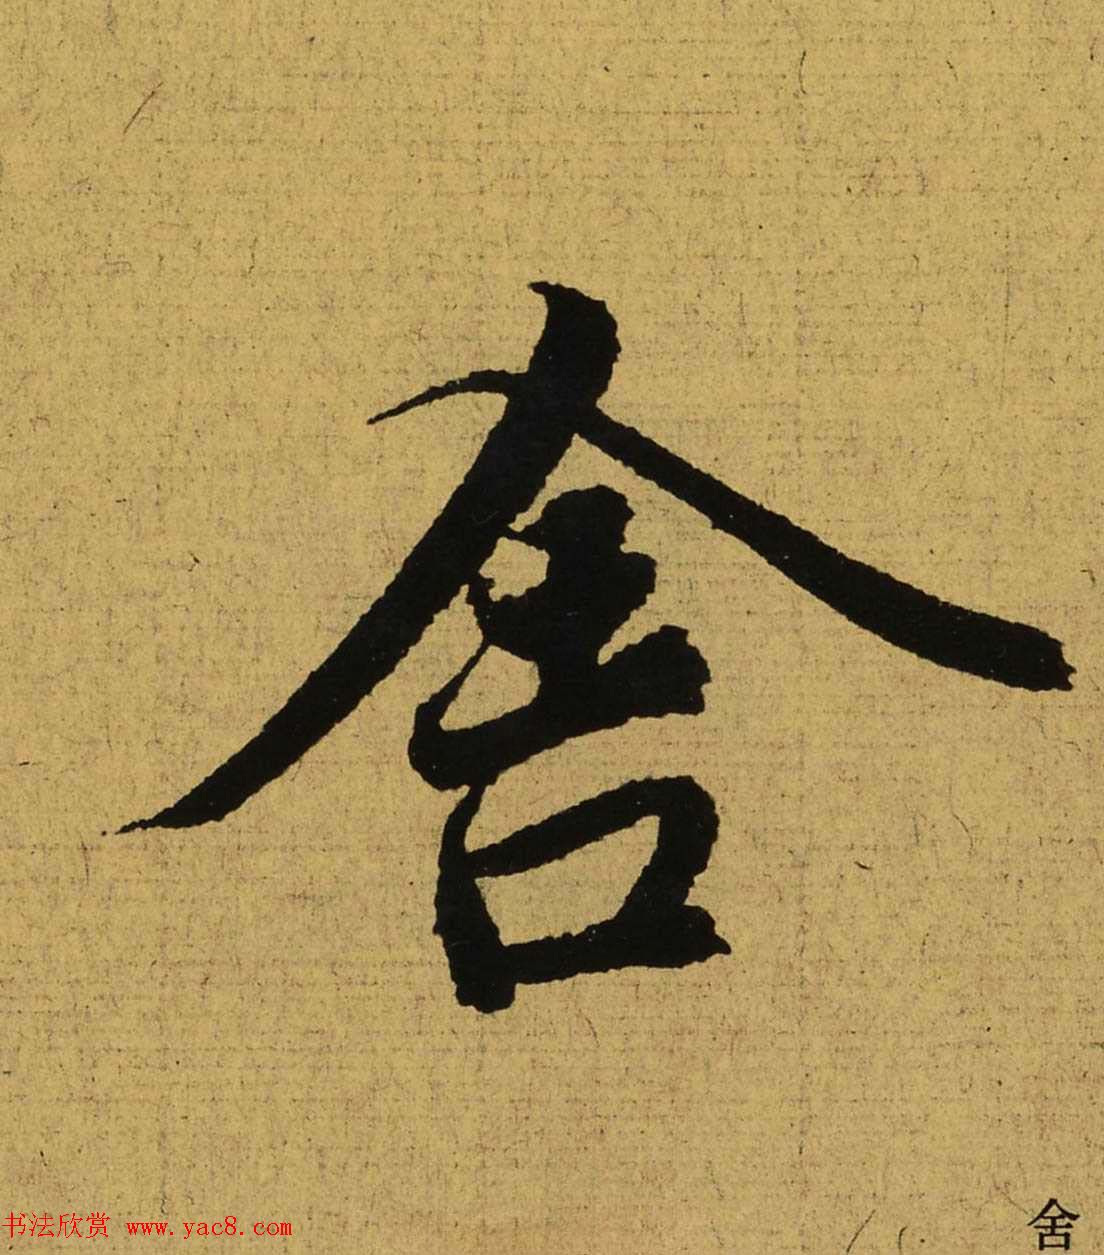 舍
书法欣赏 www.yac8.com
舍